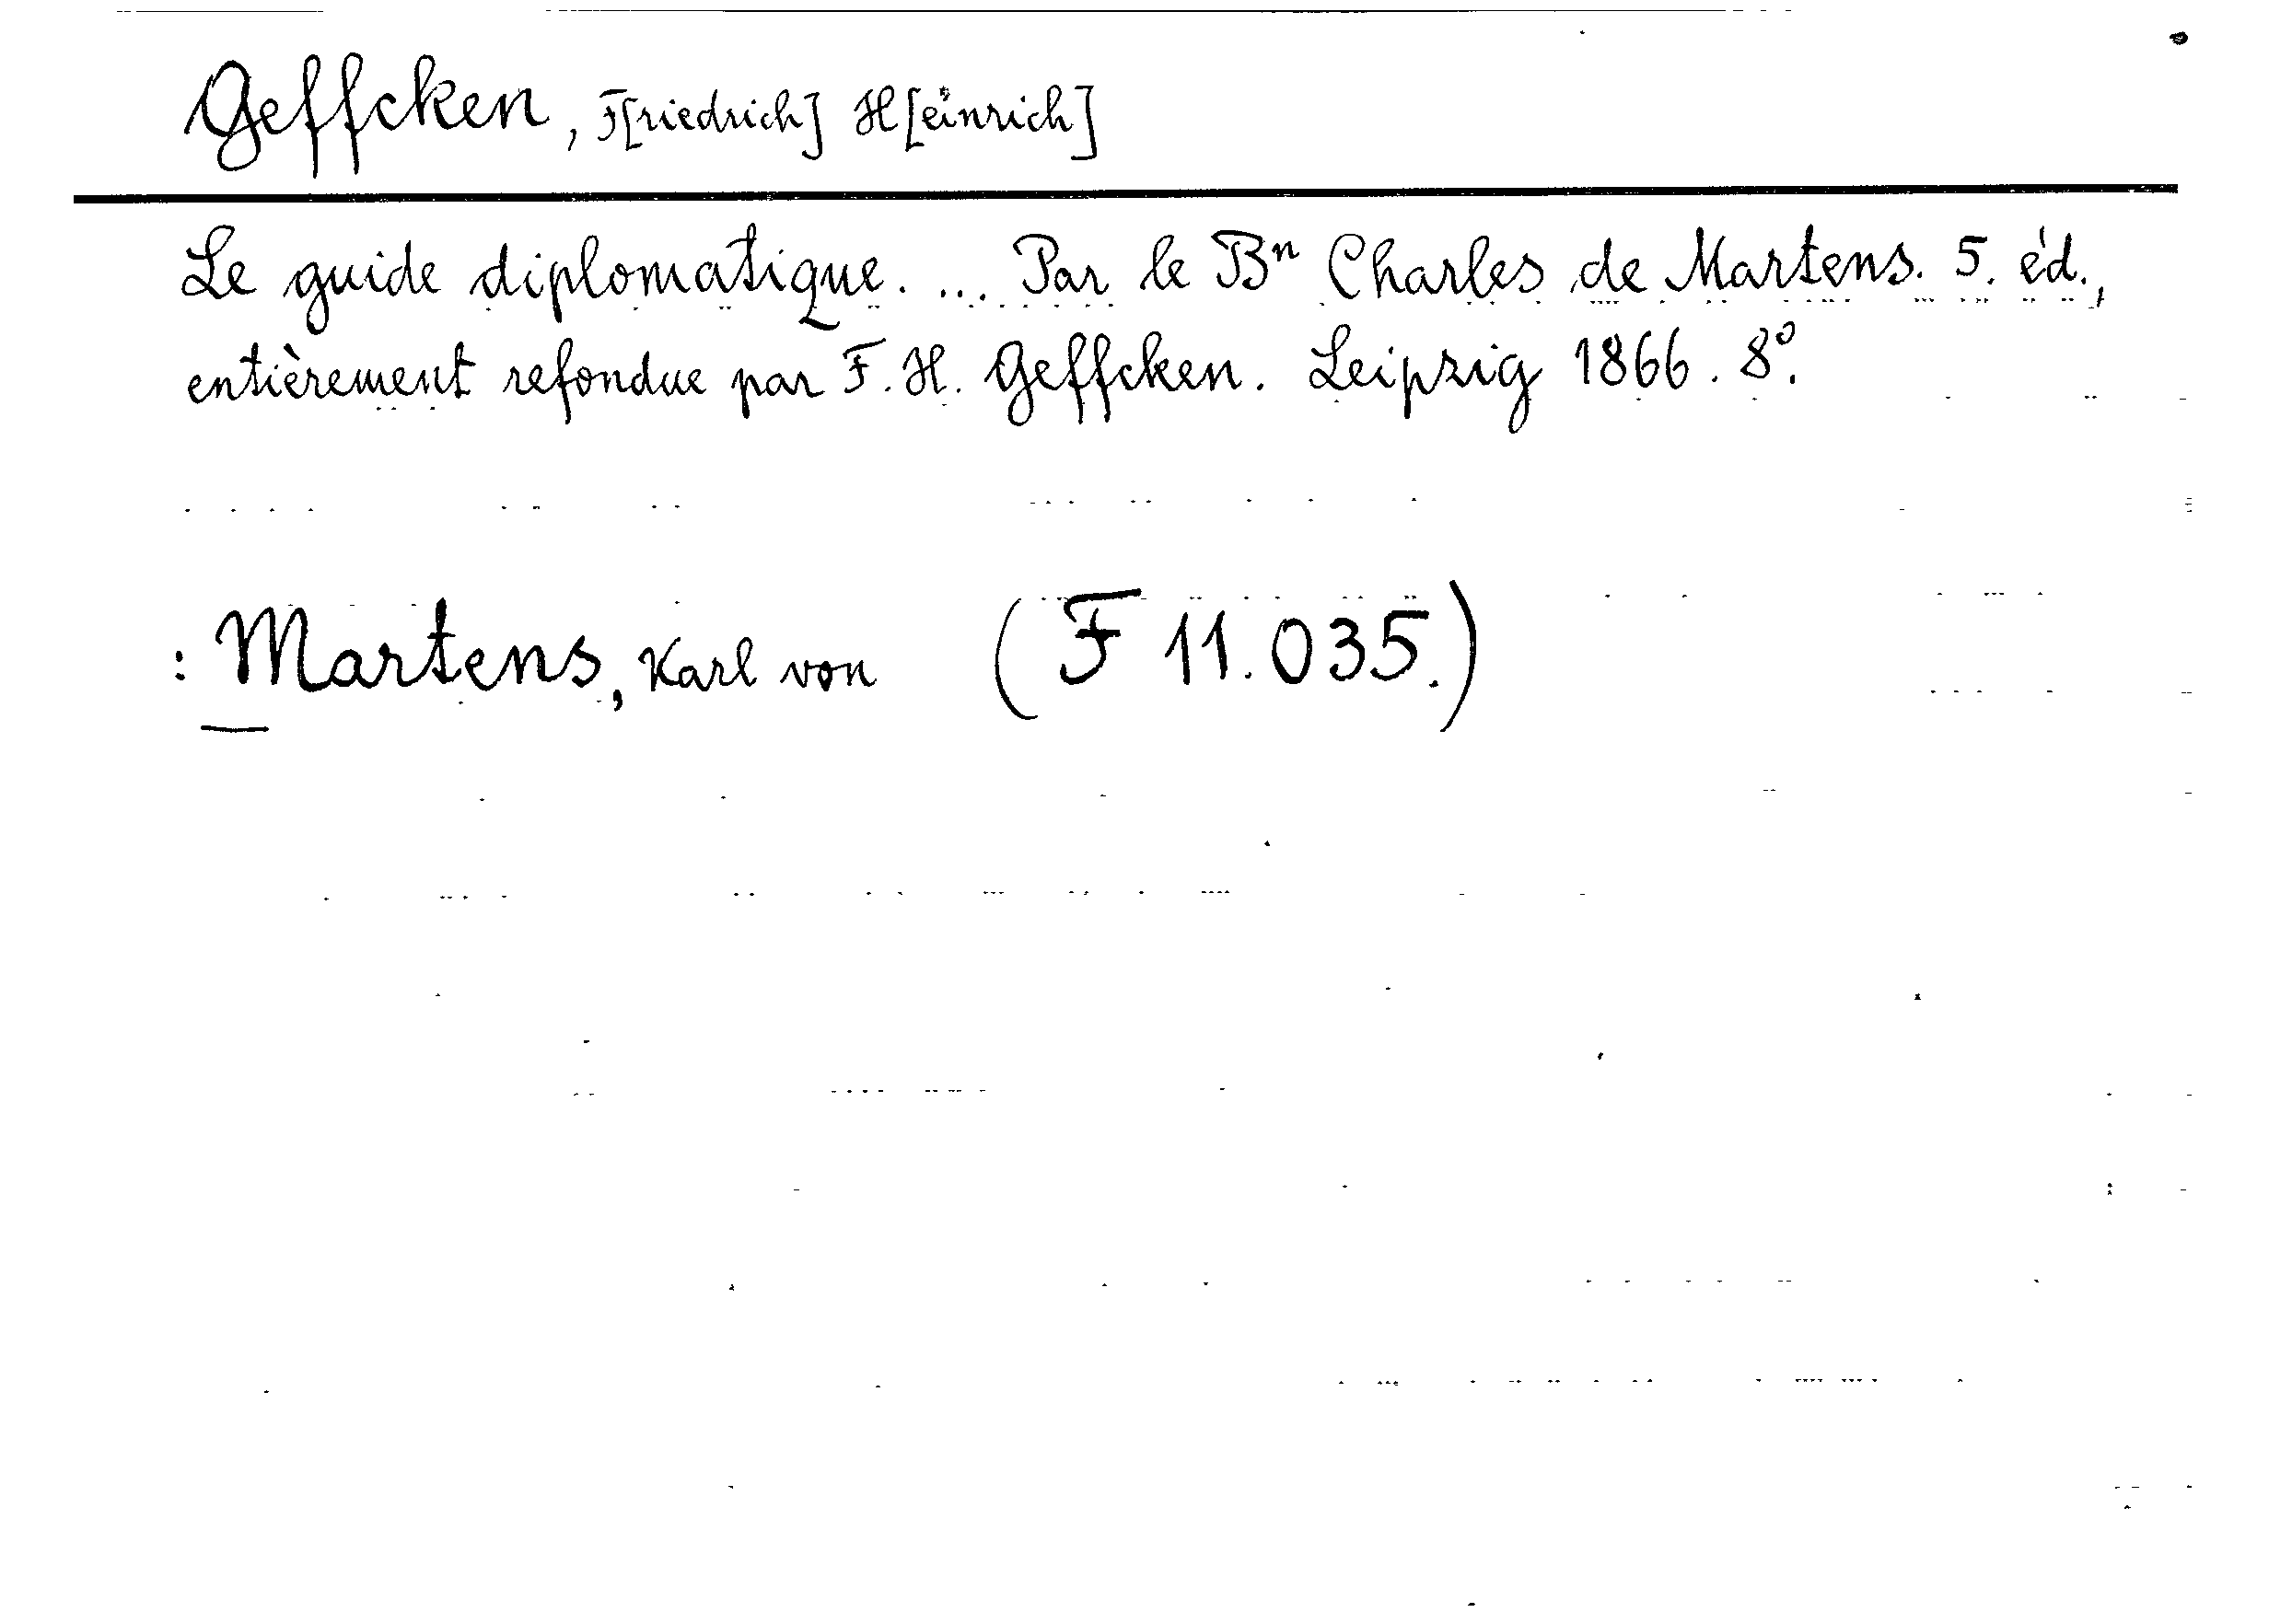 Geffcken, F[riedrich] H[einrich]
Le guide diplomatique. ... Par le Bⁿ Charles de Martens. 5. éd.,
entièrement refondue par F. H. Geffcken. Leipzig 1866. 8°.
: Martens, Karl von (F 11.035.)